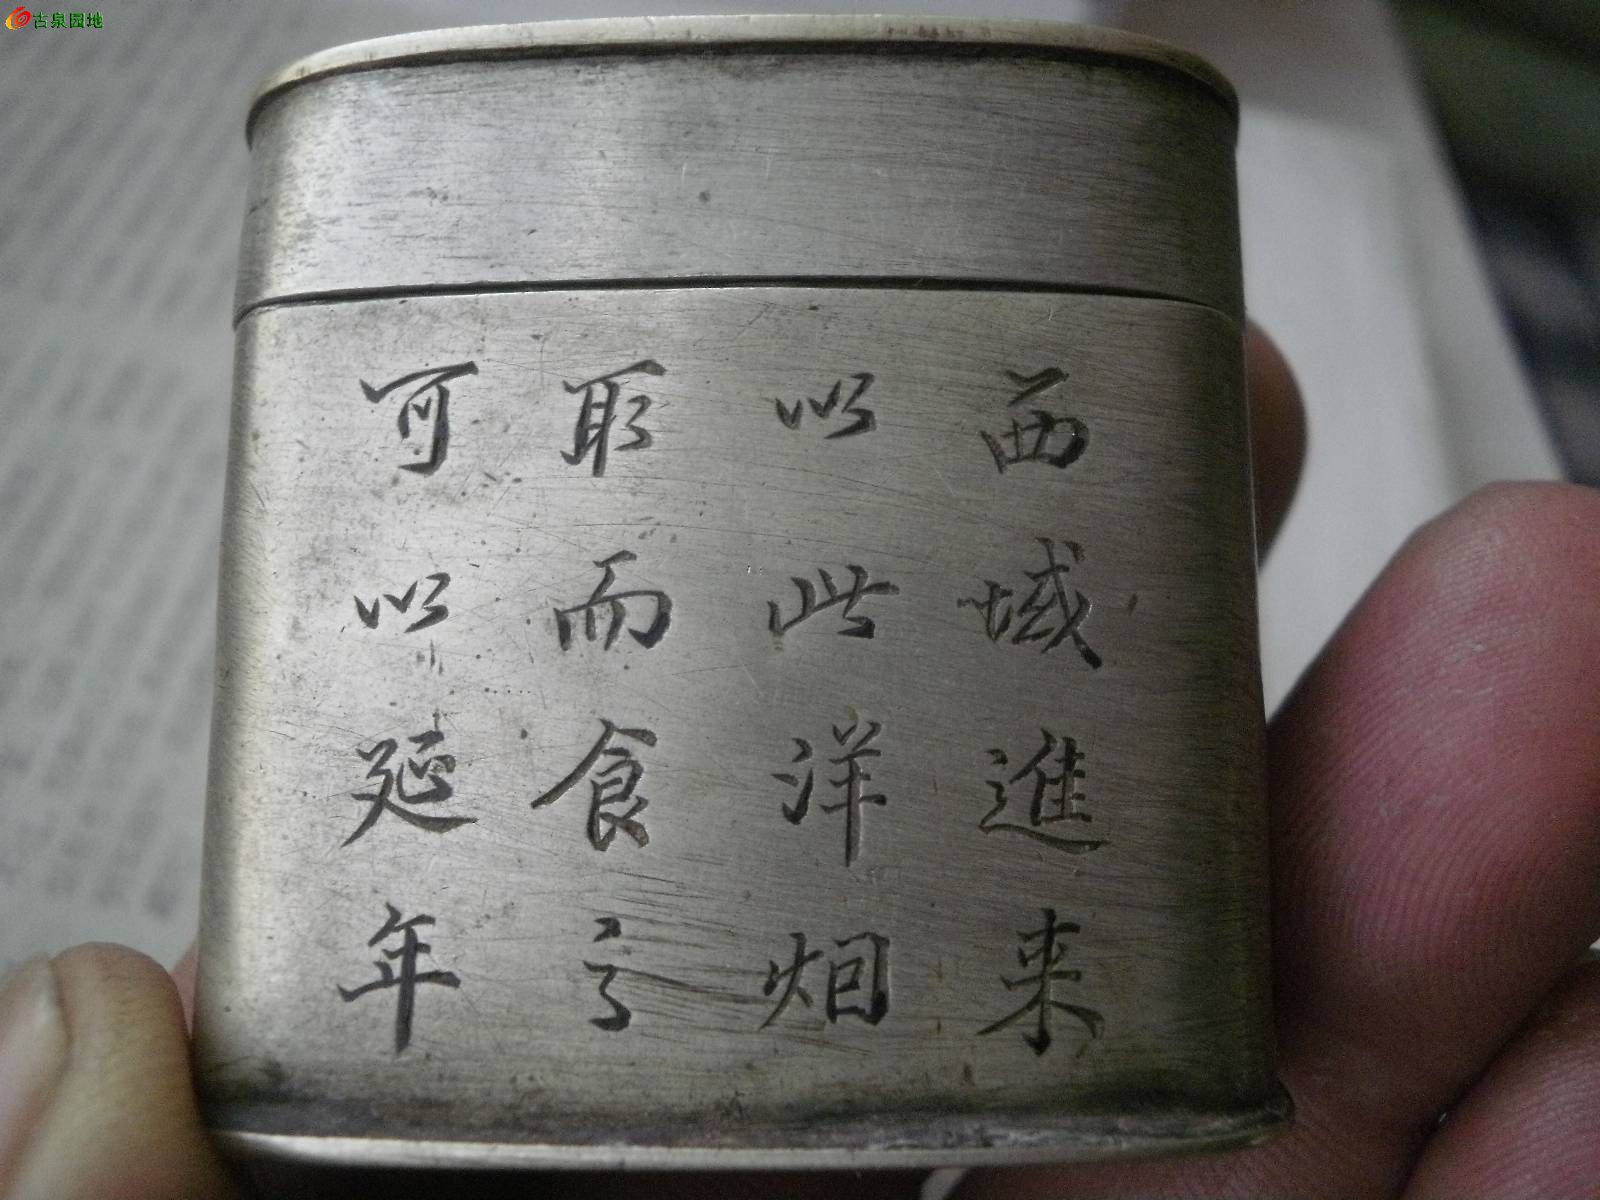 古泉园地
西域進来
以此洋烟
取而食之
可以延年